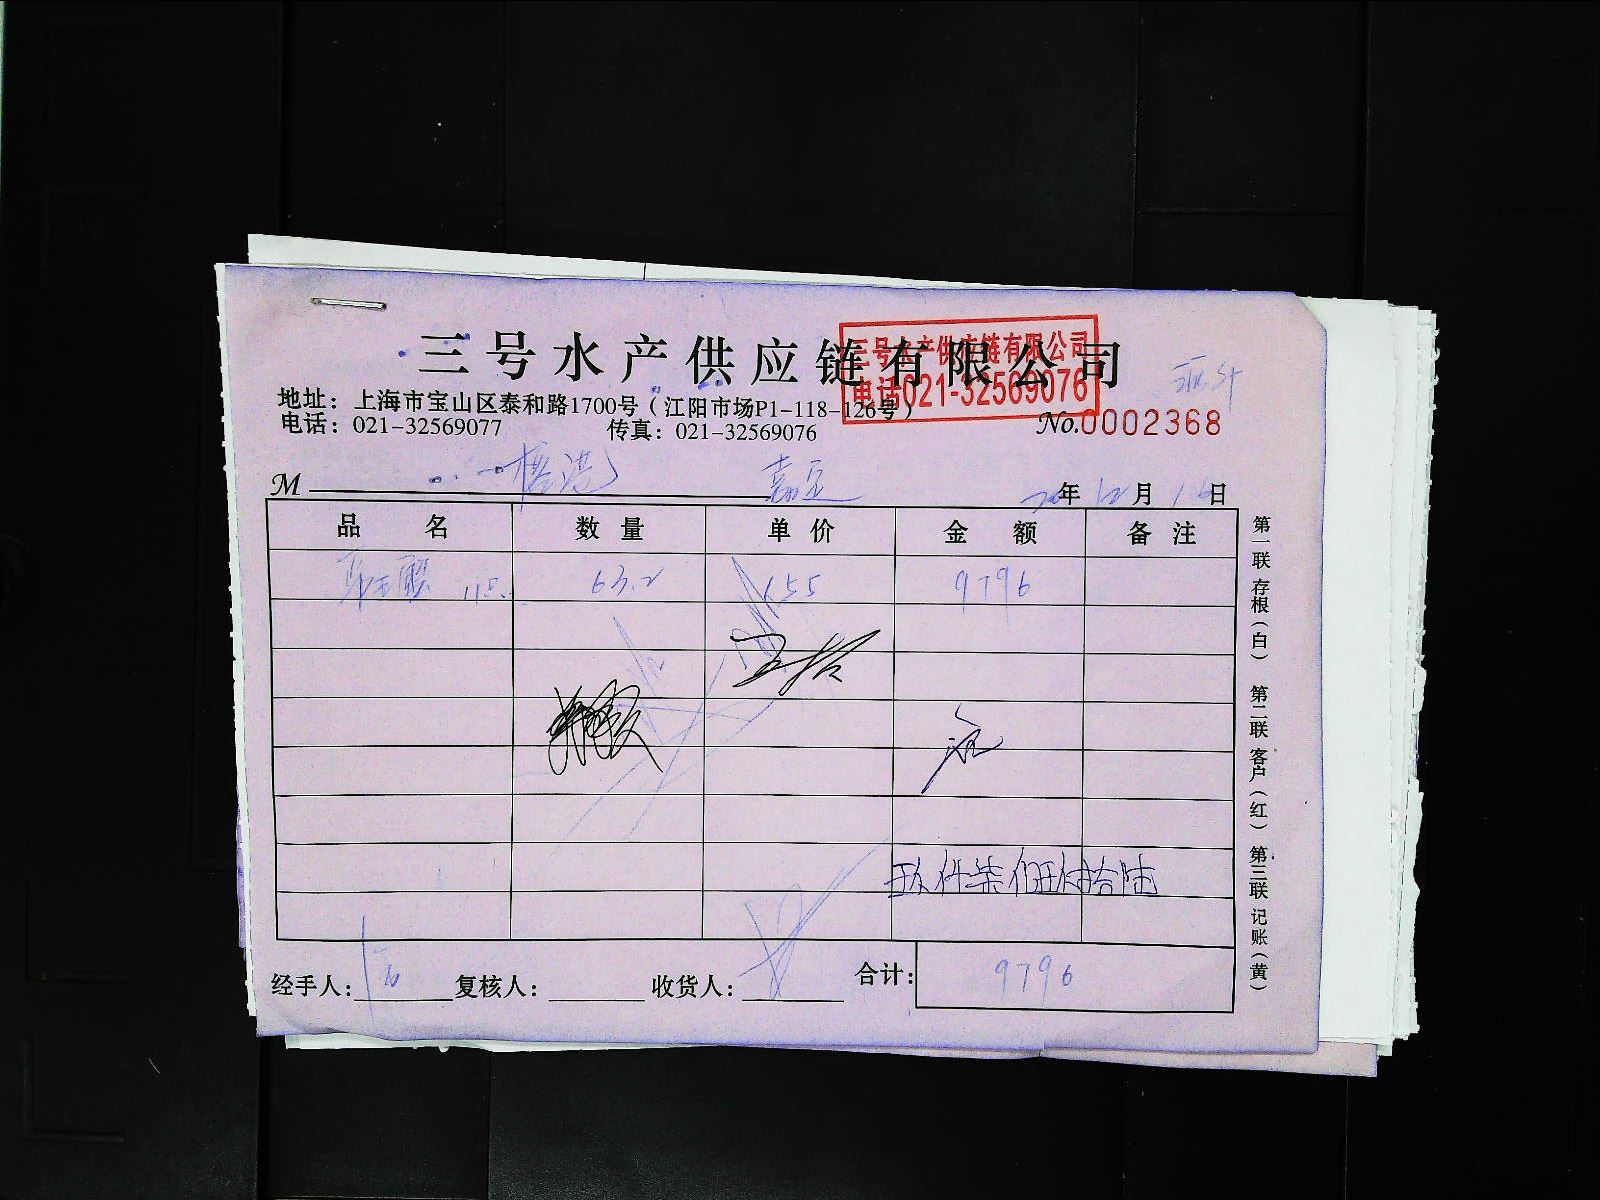 三号水产供应链有限公司
三号水产供应链有限公司
电话021-32569076
地址：上海市宝山区泰和路1700号（江阳市场P1-118-126号）
电话：021-32569077 传真：021-32569076
No.0002368
M 嘉定 年12月16日
品名 数量 单价 金额 备注
63.2 155 9796
玖仟柒佰玖拾陆
经手人： 复核人： 收货人： 合计：9796
第一联存根（白） 第二联客户（红） 第三联记账（黄）